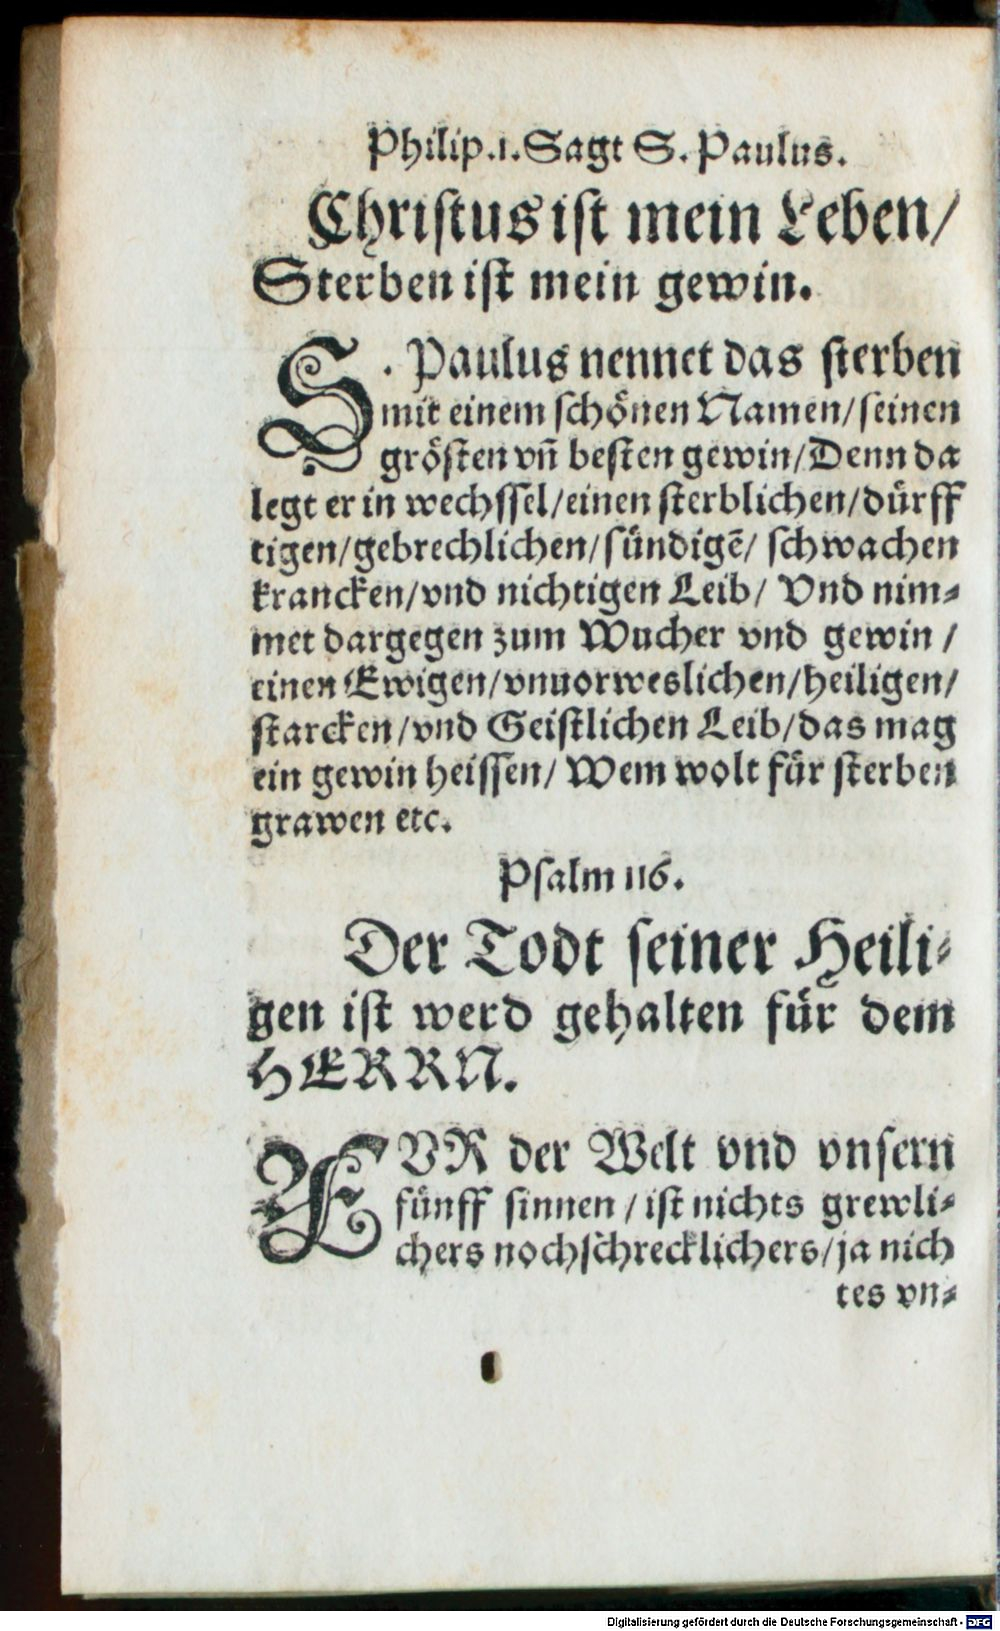 Philip.1. Sagt S. Paulus.
Christus ist mein Leben/
Sterben ist mein gewin.
S. Paulus nennet das sterben
mit einem schönen Namen/seinen
grösten vñ besten gewin/Denn da
legt er in wechssel/einen sterblichen/dürff
tigen/gebrechlichen/sündigẽ/ schwachen
krancken/vnd nichtigen Leib/ Vnd nim-
met dargegen zum Wucher vnd gewin /
einen Ewigen/vnuorweslichen/heiligen/
starcken/vnd Geistlichen Leib/das mag
ein gewin heissen/ Wem wolt für sterben
grawen etc.
Psalm 116.
Der Todt seiner Heili-
gen ist werd gehalten für dem
HERRN.
FVR der Welt vnd vnsern
fünff sinnen / ist nichts grewli-
chers noch schrecklichers/ja nich
tes vn-
Digitalisierung gefördert durch die Deutsche Forschungsgemeinschaft - DFG